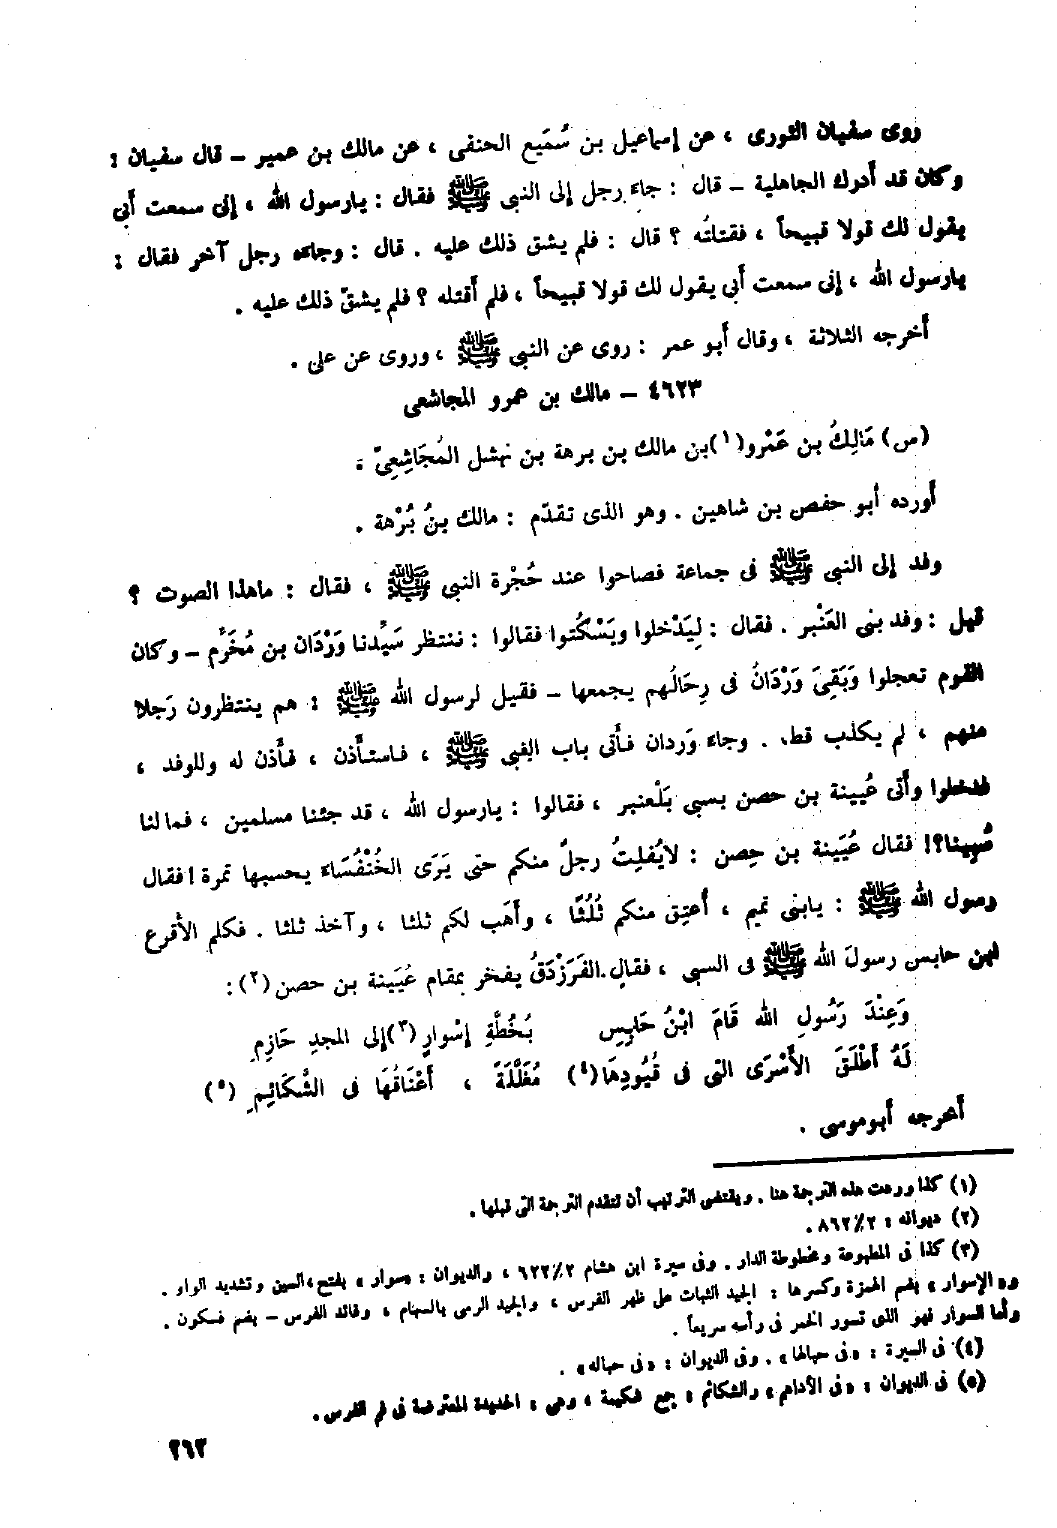 روى سفيان الثورى ، عن إسماعيل بن سُمَيع الحنفى ، عن مالك بن عمير – قال سفيان :
وكان قد أدرك الجاهلية – قال : جاء رجل إلى النبى ﷺ فقال : يارسول الله ، إنى سمعت أبى
يقول لك قولا قبيحاً ، فقتلتُه ؟ قال : فلم يشق ذلك عليه . قال : وجاءه رجل آخر فقال :
يارسول الله ، إنى سمعت أبى يقول لك قولا قبيحاً ، فلم أقتله ؟ فلم يشقّ ذلك عليه .
أخرجه الثلاثة ، وقال أبو عمر : روى عن النبى ﷺ ، وروى عن على .
٤٦٢٣ – مالك بن عمرو المجاشعى
(س) مَالِكُ بن عَمْرو(١)بن مالك بن برهة بن نهشل المُجَاشِعِىّ .
أورده أبو حفص بن شاهين . وهو الذى تقدّم : مالك بنُ بُرْهة .
وفد إلى النبى ﷺ فى جماعة فصاحوا عند حُجْرة النبى ﷺ ، فقال : ماهذا الصوت ؟
قيل : وفد بنى العَنْبر . فقال : لِيَدْخلوا ويَسْكُتوا فقالوا : ننتظر سَيِّدنا وَرْدَان بن مُخَرِّم – وكان
القوم تعجلوا وَبَقِىَ وَرْدَانُ فى رِحَالُهم يجمعها – فقيل لرسول الله ﷺ : هم ينتظرون رَجلا
منهم ، لم يكذب قط . وجاء وَردان فأتى باب النبى ﷺ ، فاستأذن ، فأذن له وللوفد ،
فدخلوا وأتى عُيينة بن حصن بسبى بَلْعنبر ، فقالوا : يارسول الله ، قد جئنا مسلمين ، فما لنا
سُبِينا؟! فقال عُيَينة بن حِصن : لايُفلِتُ رجلٌ منكم حتى يَرَى الخُنْفُسَاء يحسبها تمرة ! فقال
رسول الله ﷺ : يابنى تميم ، أعتِق منكم ثُلُثًا ، وأهَب لكم ثلثا ، وآخذ ثلثا . فكلم الأقرع
ابن حابس رسولَ الله ﷺ فى السبى ، فقال الفَرَزْدَقُ يفخر بمقام عُيَينة بن حصن (٢) :
وَعِنْدَ رَسُولِ الله قَامَ ابْنُ حَابِسٍ بُخُطَّةِ إسْوارٍ (٣)إلى المجدِ حَازِمِ
لَهُ أَطْلَقَ الأَسْرَى التى فى قُيُودِهَا(٤) مُغَلَّلَةً ، أَعْنَاقُهَا فى الشَّكَائِمِ (٥)
أخرجه أبوموسى .
(١) كذا وردت هذه الترجمة هنا . ويقتضى الترتيب أن تتقدم الترجمة التى قبلها .
(٢) ديوانه : ٢/ ٨٦٢ .
(٣) كذا فى المطبوعة ومخطوطة الدار . وفى سيرة ابن هشام ٢/ ٦٢٢ ، والديوان : «سوار » بفتح السين وتشديد الواو .
و« الإسوار » بضم الهمزة وكسرها : الجيد الثبات على ظهر الفرس ، والجيد الرمى بالسهام ، وقائد الفرس – بضم فسكون .
وأما السوار فهو الذى تسور الخمر فى رأسه سريعاً .
(٤) فى السيرة : «فى حبالها» . وفى الديوان : «فى حباله» .
(٥) فى الديوان : «فى الأداهم» والشكائم : جمع شكيمة ، وهى : الحديدة المعترضة فى فم الفرس .
٢٦٣